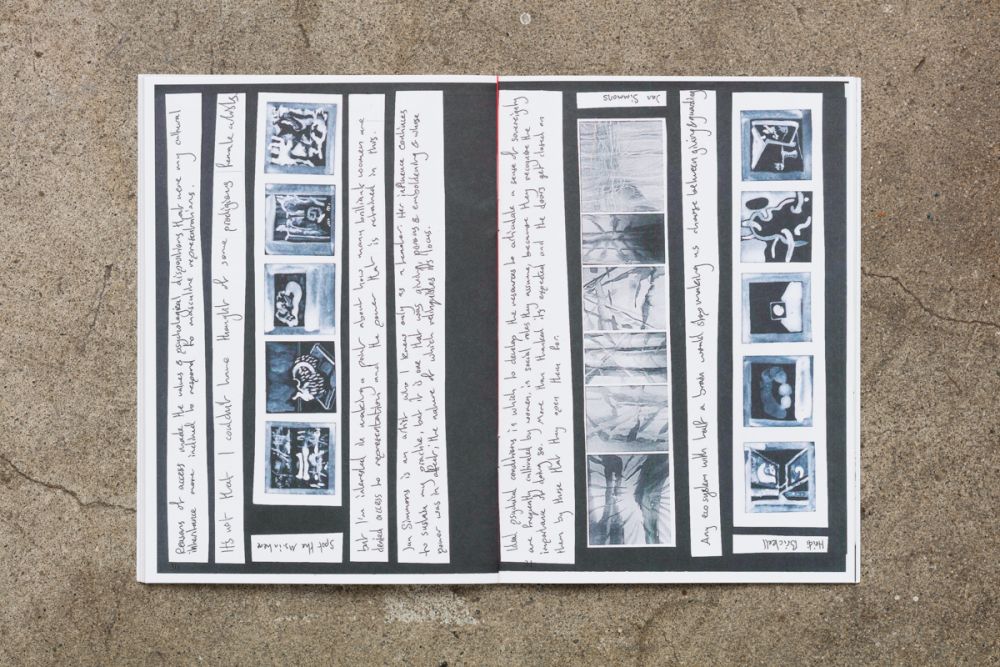 Reasons of access made the values & psychological dispositions that were my cultural
inheritance more inclined to respond to masculine representations.
It's not that I couldn't have thought of some prodigious female artists
but I'm interested in making a point about how many brilliant women are
denied access to representation and the power that is retained in this.
Jan Simmons is an artist who I knew only as a teacher. Her influence continues
to sustain my practice but it is one that was giving, porous & emboldening & whose
power was in affect; the nature of which relinquishes its locus.
Ideal psychical conditions in which to develop the resources to articulate a sense of sovereignty
are frequently cultivated by women, in social roles they assume, because they recognise the
importance of doing so. More than thanked its expected and the doors get closed on
them by those that they open them for.
Jan Simmons
Any ecosystem with half a brain would stop making us choose between giving & guarding
Brickell